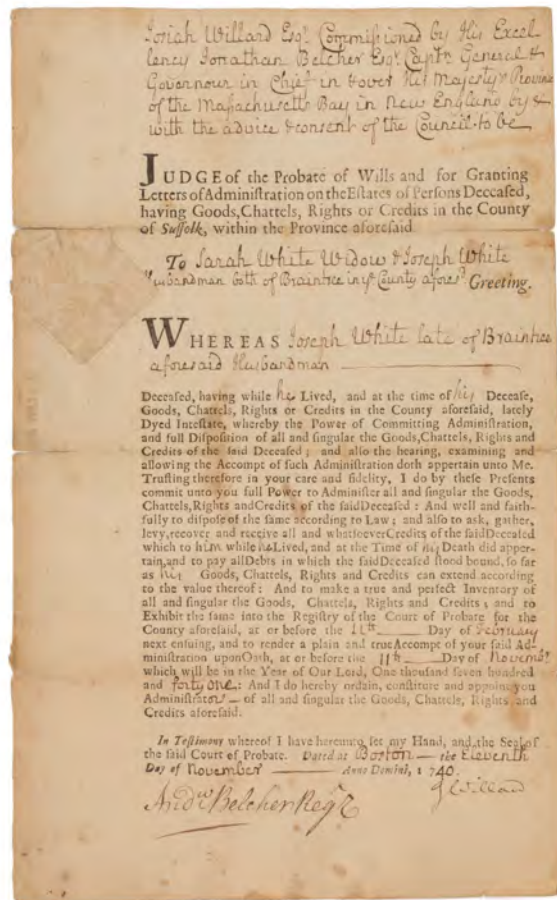 Josiah Willard Esqr. Commissioned by His Excel
lency Jonathan Belcher Esqr. Captn. General &
Governour in Chief in & over His Majestys Province
of the Massachusetts Bay in New England by &
with the advice & consent of the Council to be
JUDGE of the Probate of Wills and for Granting
Letters of Administration on the Estates of Persons Deceased,
having Goods, Chattels, Rights or Credits in the County
of Suffolk, within the Province aforesaid
To Sarah White Widow & Joseph White
Husbandman both of Braintree in ye County aforesd. Greeting.
WHEREAS Joseph White late of Braintree
aforesaid Husbandman
Deceased, having while he Lived, and at the time of his Decease,
Goods, Chattels, Rights or Credits in the County aforesaid, lately
Dyed Intestate, whereby the Power of Committing Administration,
and full Disposition of all and singular the Goods, Chattels, Rights and
Credits of the said Deceased; and also the hearing, examining and
allowing the Accompt of such Administration doth appertain unto Me.
Trusting therefore in your care and fidelity, I do by these Presents
commit unto you full Power to Administer all and singular the Goods,
Chattels, Rights and Credits of the said Deceased: And well and faith-
fully to dispose of the same according to Law; and also to ask, gather,
levy, recover and receive all and whatsoever Credits of the said Deceased
which to him while he Lived, and at the Time of his Death did apper-
tain, and to pay all Debts in which the said Deceased stood bound, so far
as his Goods, Chattels, Rights and Credits can extend according
to the value thereof: And to make a true and perfect Inventory of
all and singular the Goods, Chattels, Rights and Credits; and to
Exhibit the same into the Registry of the Court of Probate for the
County aforesaid, at or before the 11th Day of February
next ensuing, and to render a plain and true Accompt of your said Ad-
ministration upon Oath, at or before the 11th Day of Novembr
which will be in the Year of Our Lord, One thousand seven hundred
and forty one: And I do hereby ordain, constitute and appoint you
Administrators of all and singular the Goods, Chattels, Rights and
Credits aforesaid.
In Testimony whereof I have hereunto set my Hand, and the Seal of
the said Court of Probate. Dated at Boston the Eleventh
Day of November Anno Domini, 1740.
J Willard
Andw Belcher Regr